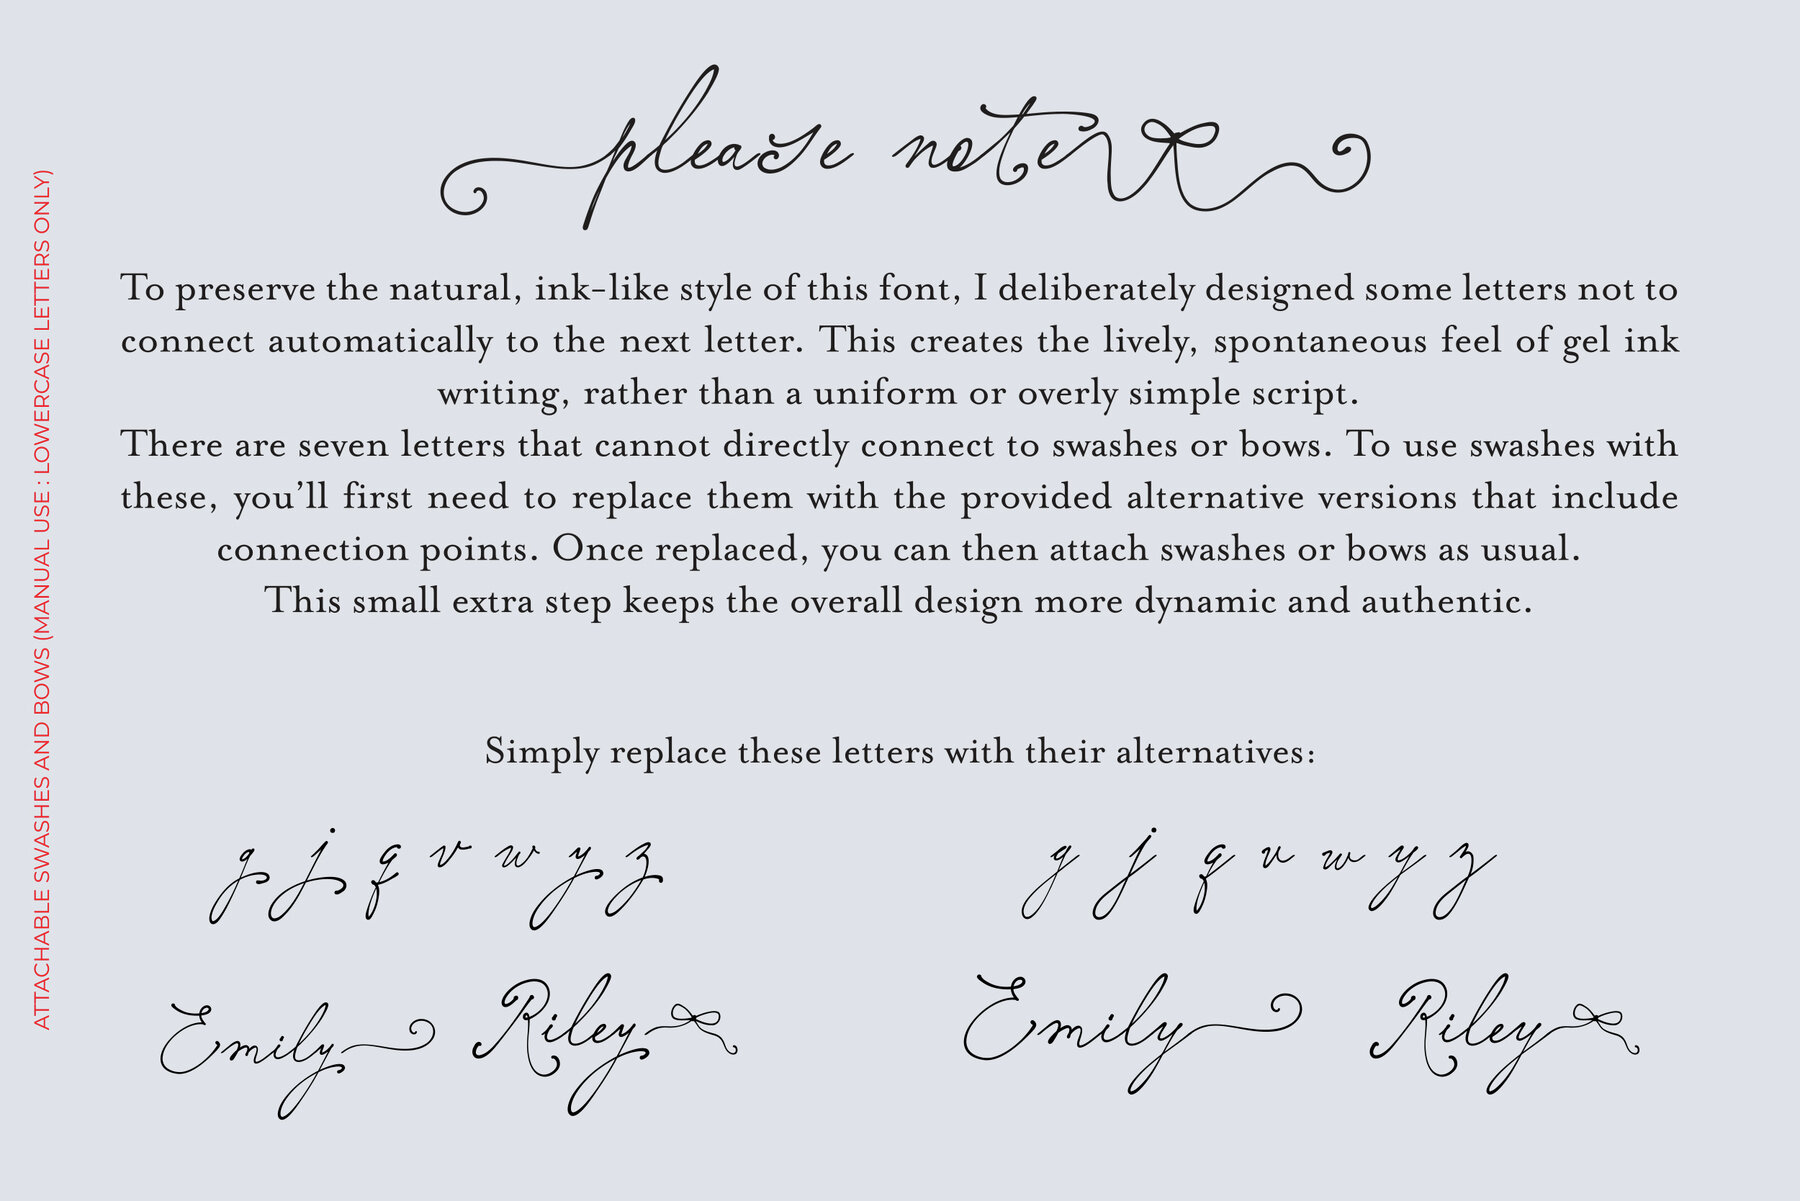 please note
To preserve the natural, ink-like style of this font, I deliberately designed some letters not to
connect automatically to the next letter. This creates the lively, spontaneous feel of gel ink
writing, rather than a uniform or overly simple script.
There are seven letters that cannot directly connect to swashes or bows. To use swashes with
these, you’ll first need to replace them with the provided alternative versions that include
connection points. Once replaced, you can then attach swashes or bows as usual.
This small extra step keeps the overall design more dynamic and authentic.
Simply replace these letters with their alternatives:
g j q v w y z
g j q v w y z
Emily Riley
Emily Riley
ATTACHABLE SWASHES AND BOWS (MANUAL USE : LOWERCASE LETTERS ONLY)